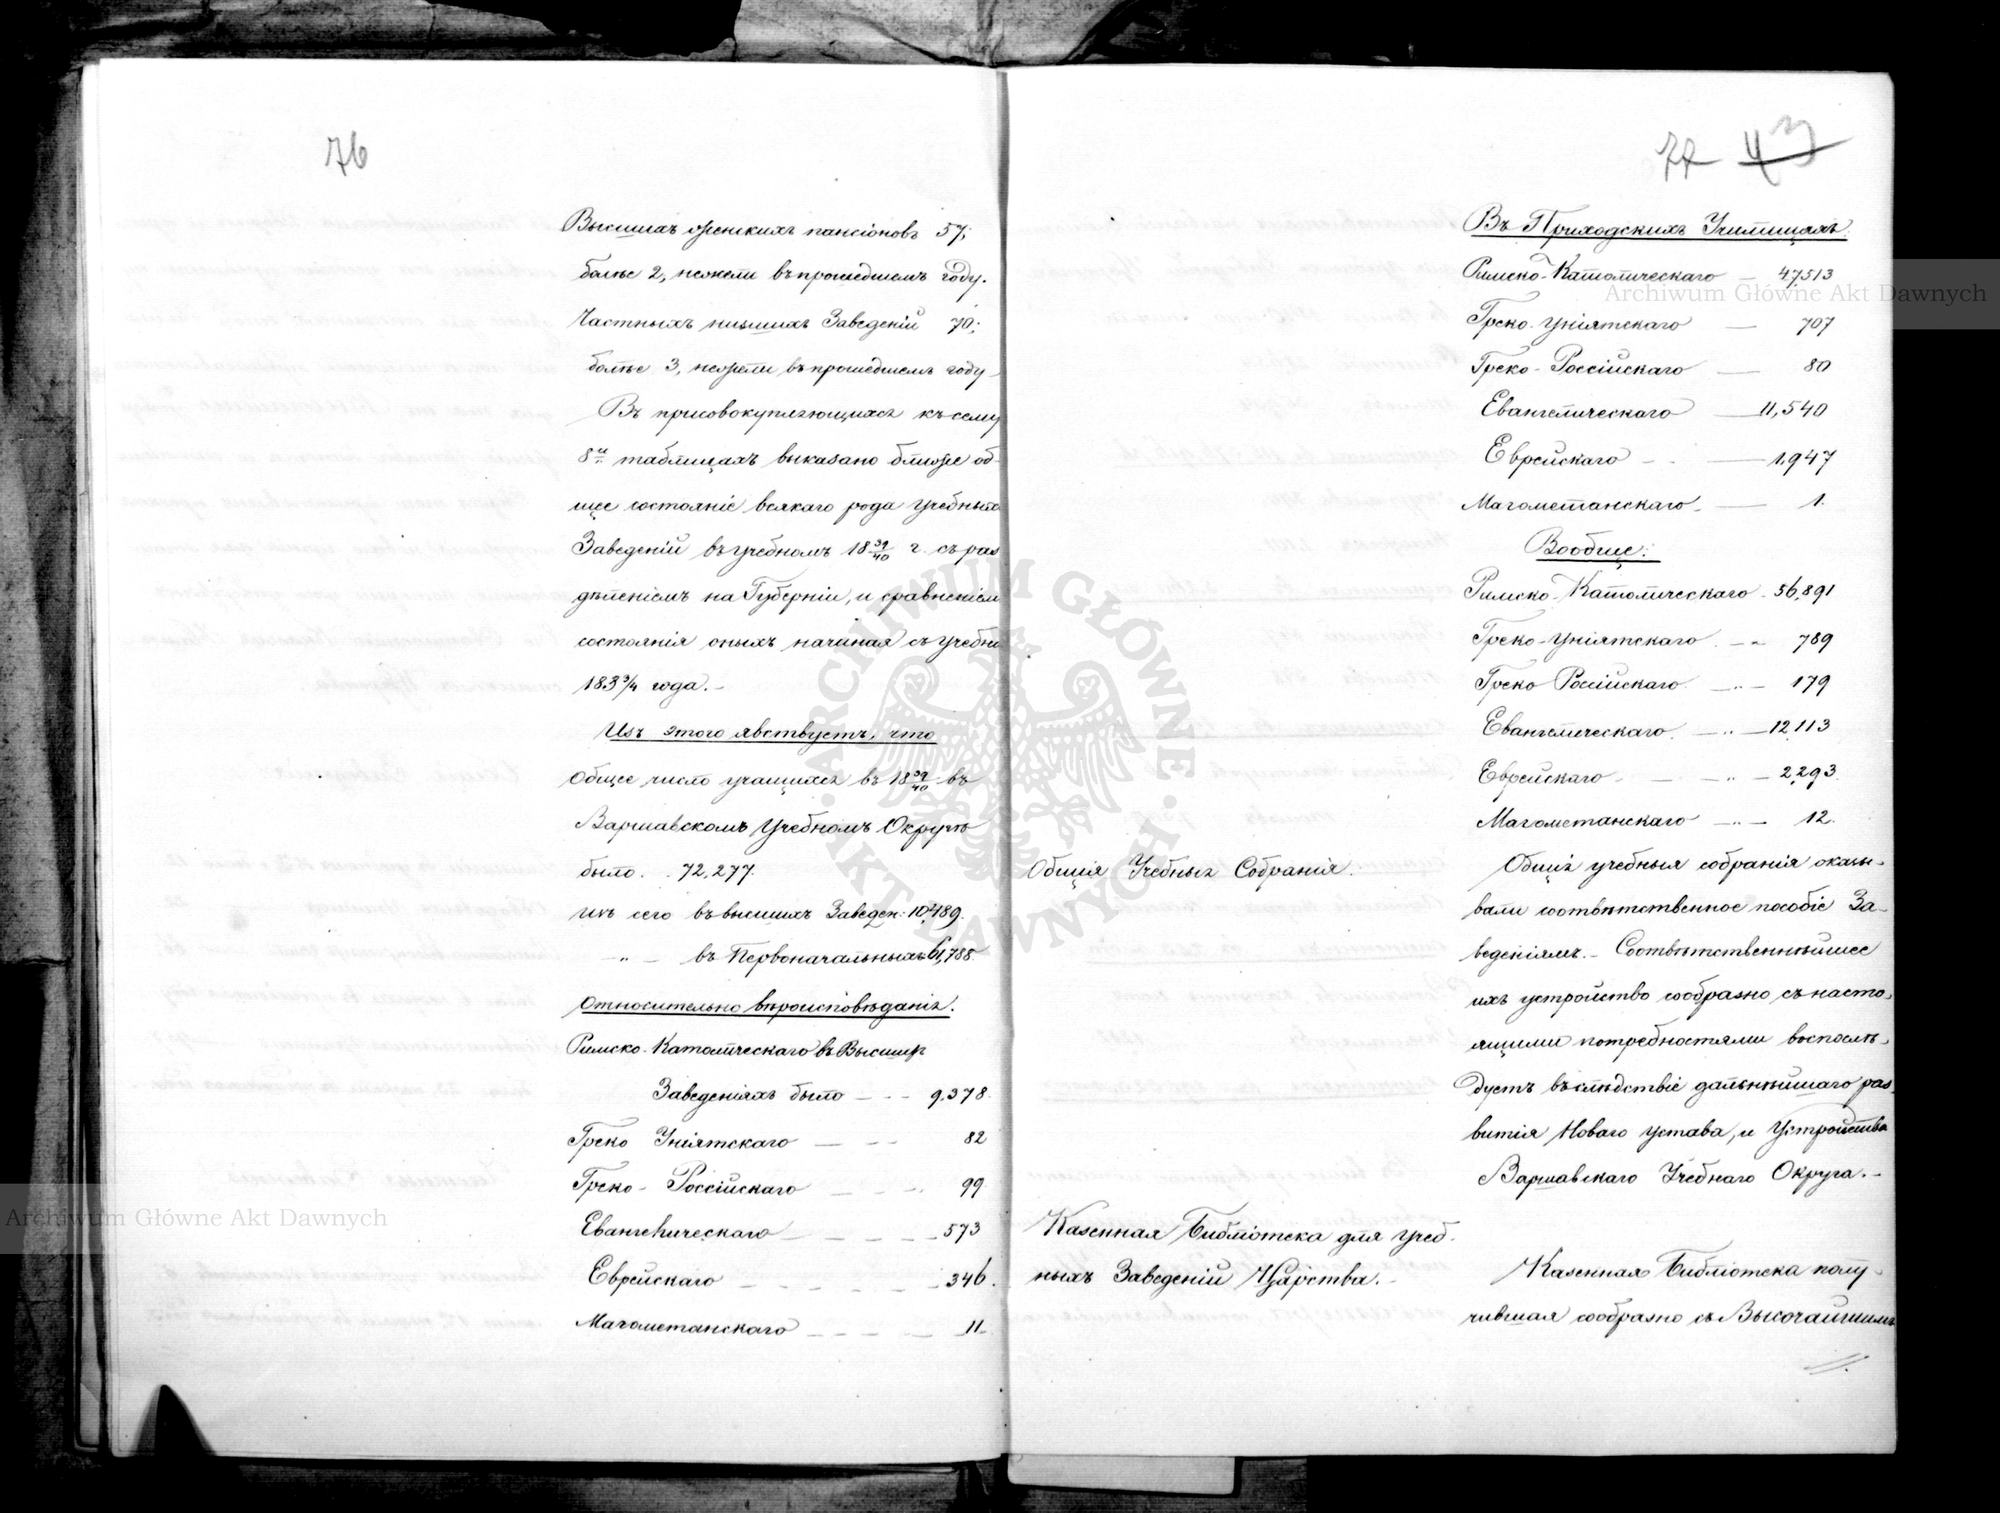 76
Высшихъ женскихъ пансіоновъ 57;
болѣе 2, нежели въ прошедшемъ году.
Частныхъ низшихъ Заведеній 70;
болѣе 3, нежели въ прошедшемъ году
Въ присовокупляющихся къ сему
8и таблицахъ выказано ближе об-
щее состояніе всякаго рода учебныхъ
Заведеній въ учебномъ 18 39/40 г. съ раз
дѣленіемъ на Губерніи, и сравненіем
состоянія оныхъ начиная съ учебна
183 3/4 года. -
Изъ этого явствуетъ, что
Общее число учащихся въ 18 39/40 въ
Варшавскомъ Учебномъ Округѣ
было . . 72,277.
изъ сего въ высшихъ Заведен: 10,489.
- „ - въ Первоначальныхъ 61,788
Относительно вѣроисповѣданія.
Римско-Католическаго въ Высших
Заведеніяхъ было - - - 9.378
Греко Уніятскаго - - - 82
Греко-Россійскаго - - - 99
Евангелическаго - - - - 573
Еврейскаго - - - - - 346.
Магометанскаго - - - - 11
77 43
Въ Приходскихъ Училищахъ:
Римско-Католическаго - 47,513
Греко-Уніятскаго - 707
Греко-Россійскаго - 80
Евангелическаго - 11,540
Еврейскаго - - 1,947
Магометанскаго - 1.
Вообще:
Римско-Католическаго - 56,891
Греко-Уніятскаго - „ 789
Греко Россійскаго - „ - 179
Евангелическаго - „ - 12,113
Еврейскаго - - „ - 2,293.
Магометанскаго - „ - 12.
Общія Учебныя Собранія.
Общія учебныя собранія оказы-
вали соотвѣтственное пособіе За-
веденіямъ. - Соотвѣтственнѣйшее
ихъ устройство сообразно съ насто-
ящими потребностями воспослѣ-
дуетъ въ слѣдствіе дальнѣйшаго раз
витія Новаго Устава, и Устройства
Варшавскаго Учебнаго Округа. -
Казенная Библіотека для учеб-
ныхъ Заведеній Царства. -
Казенная Библіотека полу-
чившая сообразно съ Высочайшимъ
Archiwum Główne Akt Dawnych
Archiwum Główne Akt Dawnych
ARCHIWUM GŁÓWNE · AKT DAWNYCH ·